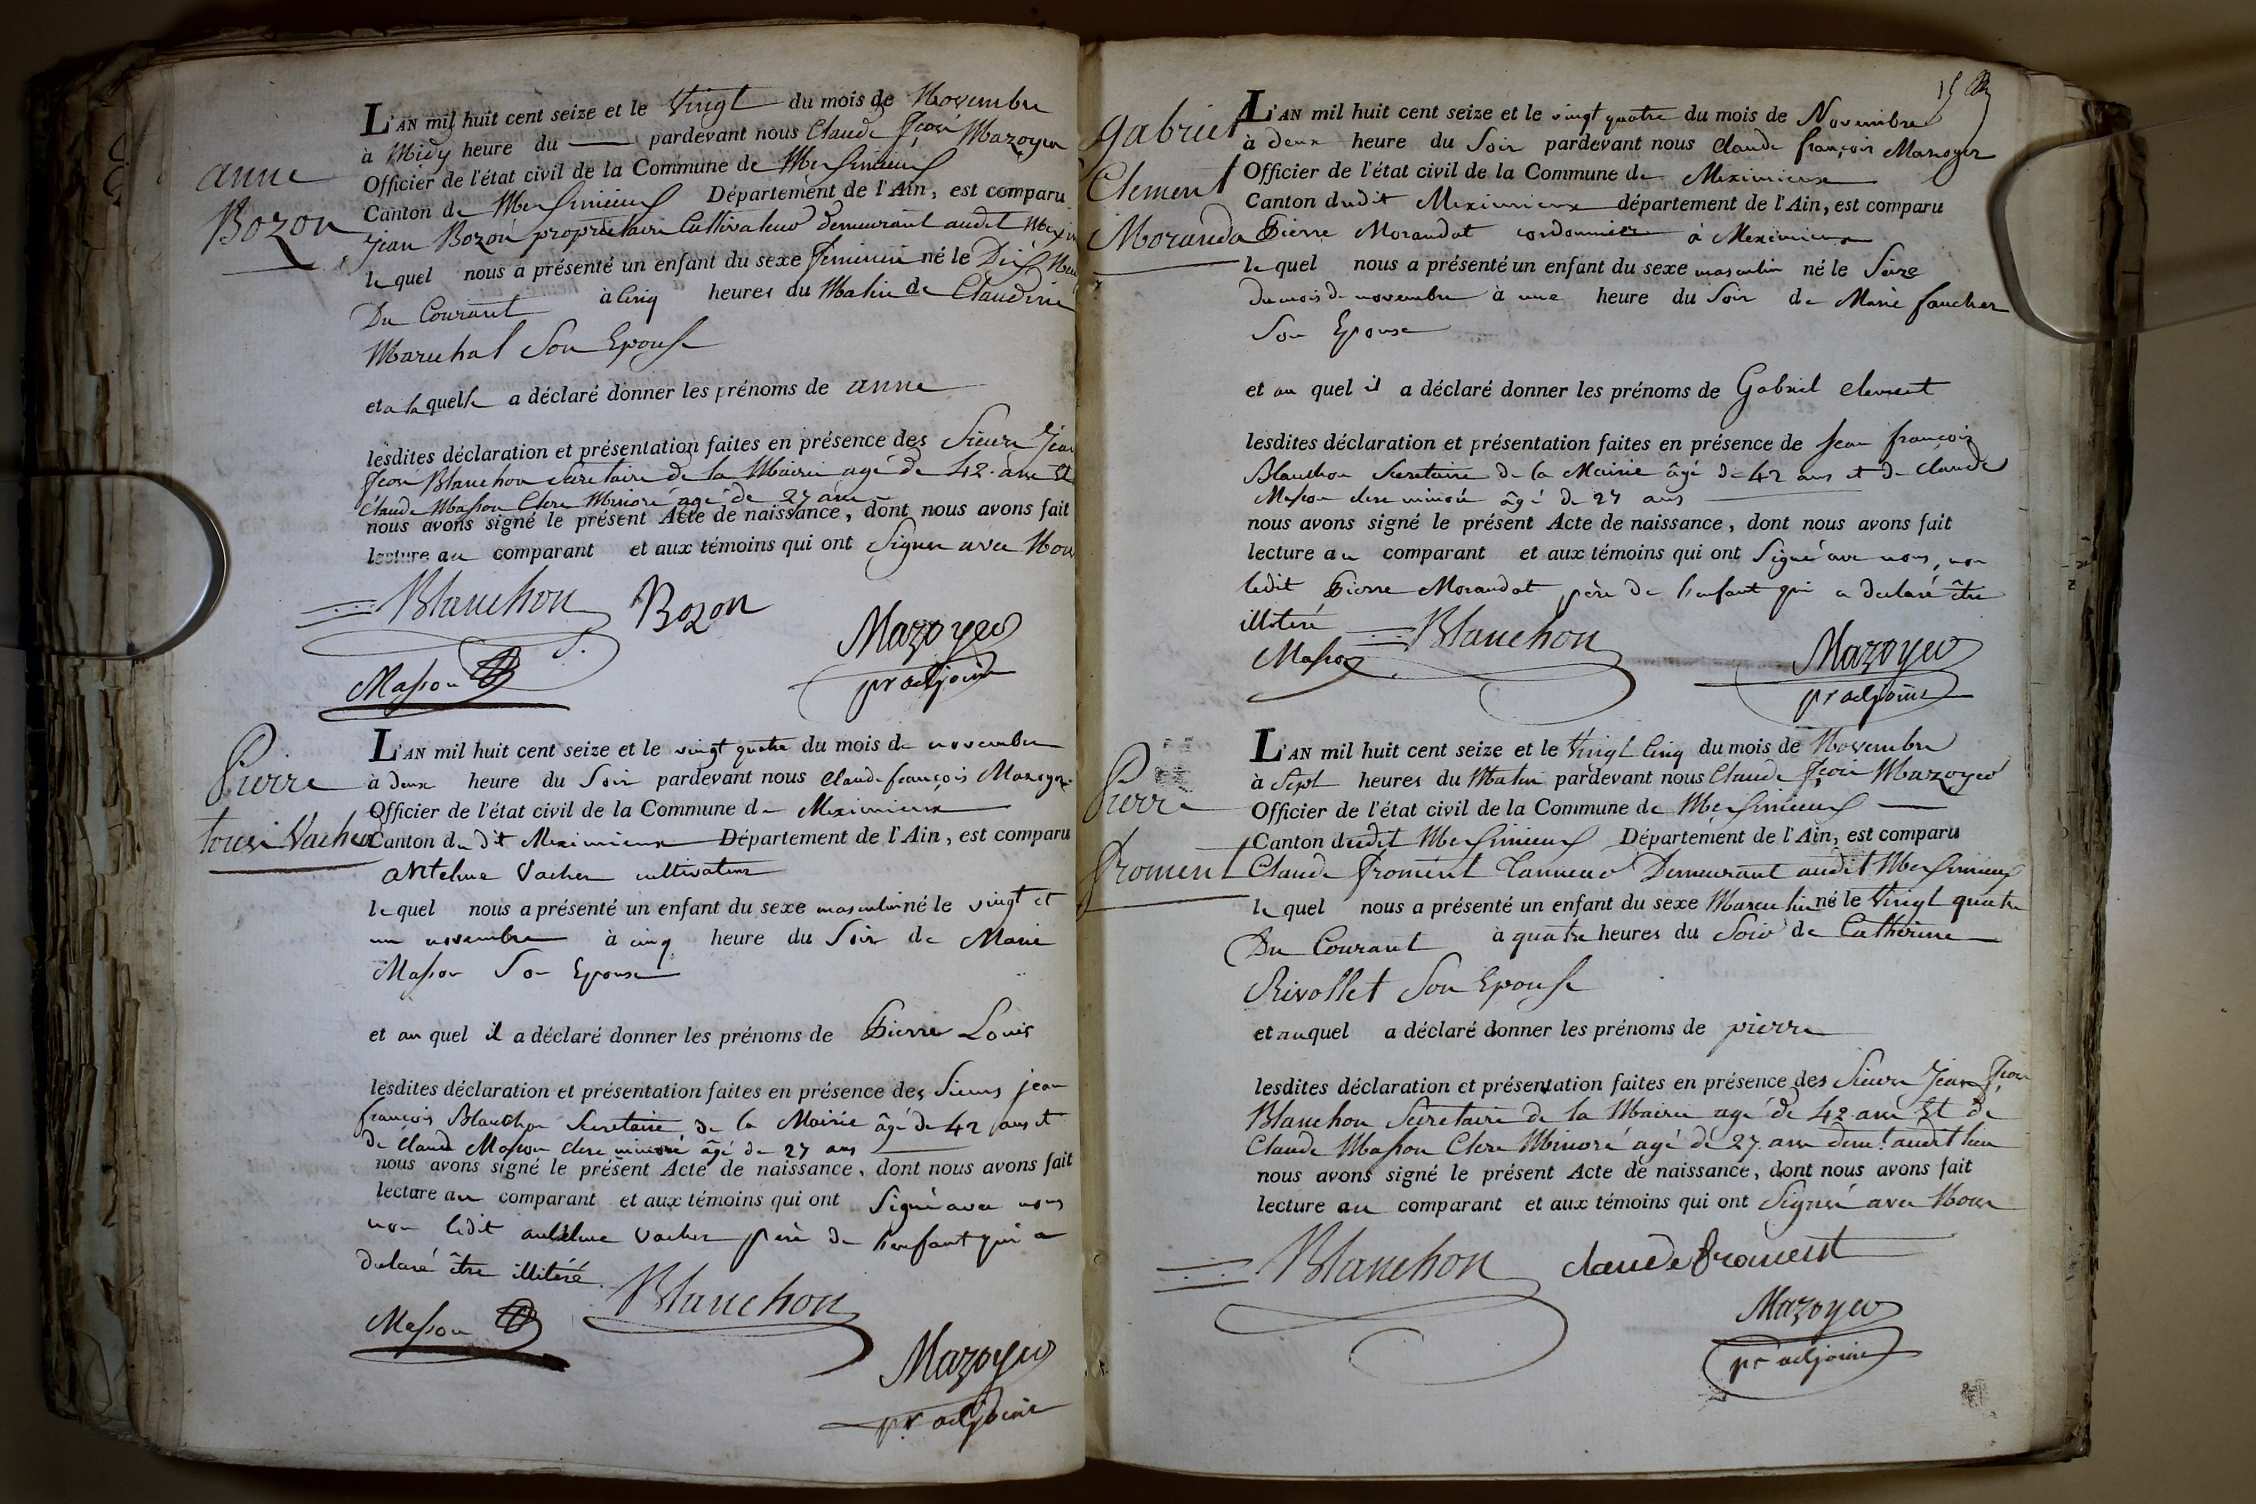 anne
Bozon
L'AN mil huit cent seize et le Vingt du mois de Novembre
à Midy heure du pardevant nous Claude fçois Mazoyer
Officier de l'état civil de la Commune de Meximieux
Canton de Meximieux Département de l'Ain, est comparu
jean Bozon propriétaire Cultivateur demeurant audit
le quel nous a présenté un enfant du sexe feminin né le Dix Neuf
Du Courant à Cinq heures du Matin de Claudine
Marechal Son Epouse
et a la quelle a déclaré donner les prénoms de anne
lesdites déclaration et présentation faites en présence des Sieurs Jean
fçois Blanchon Secretaire de la Mairie agé de 42 ans Et
Claude Masson Clerc Minoré agé de 27 ans
nous avons signé le présent Acte de naissance, dont nous avons fait
lecture au comparant et aux témoins qui ont Signer avec Nous
Blanchon Bozon
Mazoyer
Masson
pr adjoint
Pierre
Louis Vacher
L'AN mil huit cent seize et le vingt quatre du mois de novembre
à deux heure du Soir pardevant nous Claude françois Mazoyer
Officier de l'état civil de la Commune de Meximieux
Canton dudit Meximieux Département de l'Ain, est comparu
antelme Vacher cultivateur
le quel nous a présenté un enfant du sexe masculin né le vingt et
un novembre à cinq heure du Soir de Marie
Masson Son Epouse
et au quel il a déclaré donner les prénoms de Pierre Louis
lesdites déclaration et présentation faites en présence des Sieurs jean
françois Blanchon Secretaire de la Mairie âgé de 42 ans et
de Claude Masson clerc minoré âgé de 27 ans
nous avons signé le présent Acte de naissance, dont nous avons fait
lecture au comparant et aux témoins qui ont Signé avec nous
non ledit antelme Vacher père de l'enfant qui a
declaré être illitéré.
Masson Blanchon
Mazoyer
pr adjoint
15
Gabriel
Clement
Morandat
L'AN mil huit cent seize et le vingt quatre du mois de Novembre
à deux heure du Soir pardevant nous Claude françois Mazoyer
Officier de l'état civil de la Commune de Meximieux
Canton dudit Meximieux département de l'Ain, est comparu
Pierre Morandat cordonnier à Meximieux
le quel nous a présenté un enfant du sexe masculin né le Seize
du mois de novembre à une heure du Soir de Marie faucher
Son Epouse
et au quel il a déclaré donner les prénoms de Gabriel clement
lesdites déclaration et présentation faites en présence de Jean françois
Blanchon Secretaire de la Mairie âgé de 42 ans et de Claude
Masson clerc minoré âgé de 27 ans
nous avons signé le présent Acte de naissance, dont nous avons fait
lecture au comparant et aux témoins qui ont Signé avec nous, non
ledit Pierre Morandat père de l'enfant qui a declaré être
illitéré
Masson Blanchon Mazoyer
pr adjoint
Pierre
froment
L'AN mil huit cent seize et le Vingt Cinq du mois de Novembre
à Sept heures du Matin pardevant nous Claude fçois Mazoyer
Officier de l'état civil de la Commune de Meximieux
Canton dudit Meximieux Département de l'Ain, est comparu
Claude froment Tanneur Demeurant audit Meximieux
le quel nous a présenté un enfant du sexe Masculin né le Vingt quatre
Du Courant à quatre heures du Soir de Catherine
Rivollet Son Epouse
et auquel a déclaré donner les prénoms de pierre
lesdites déclaration et présentation faites en présence des Sieurs Jean fçois
Blanchon Secretaire de la Mairie agé de 42 ans Et de
Claude Masson Clerc Minoré agé de 27 ans demt audit lieu
nous avons signé le présent Acte de naissance, dont nous avons fait
lecture au comparant et aux témoins qui ont Signé avec Nous
Blanchon claude froment
Mazoyer
pr adjoint